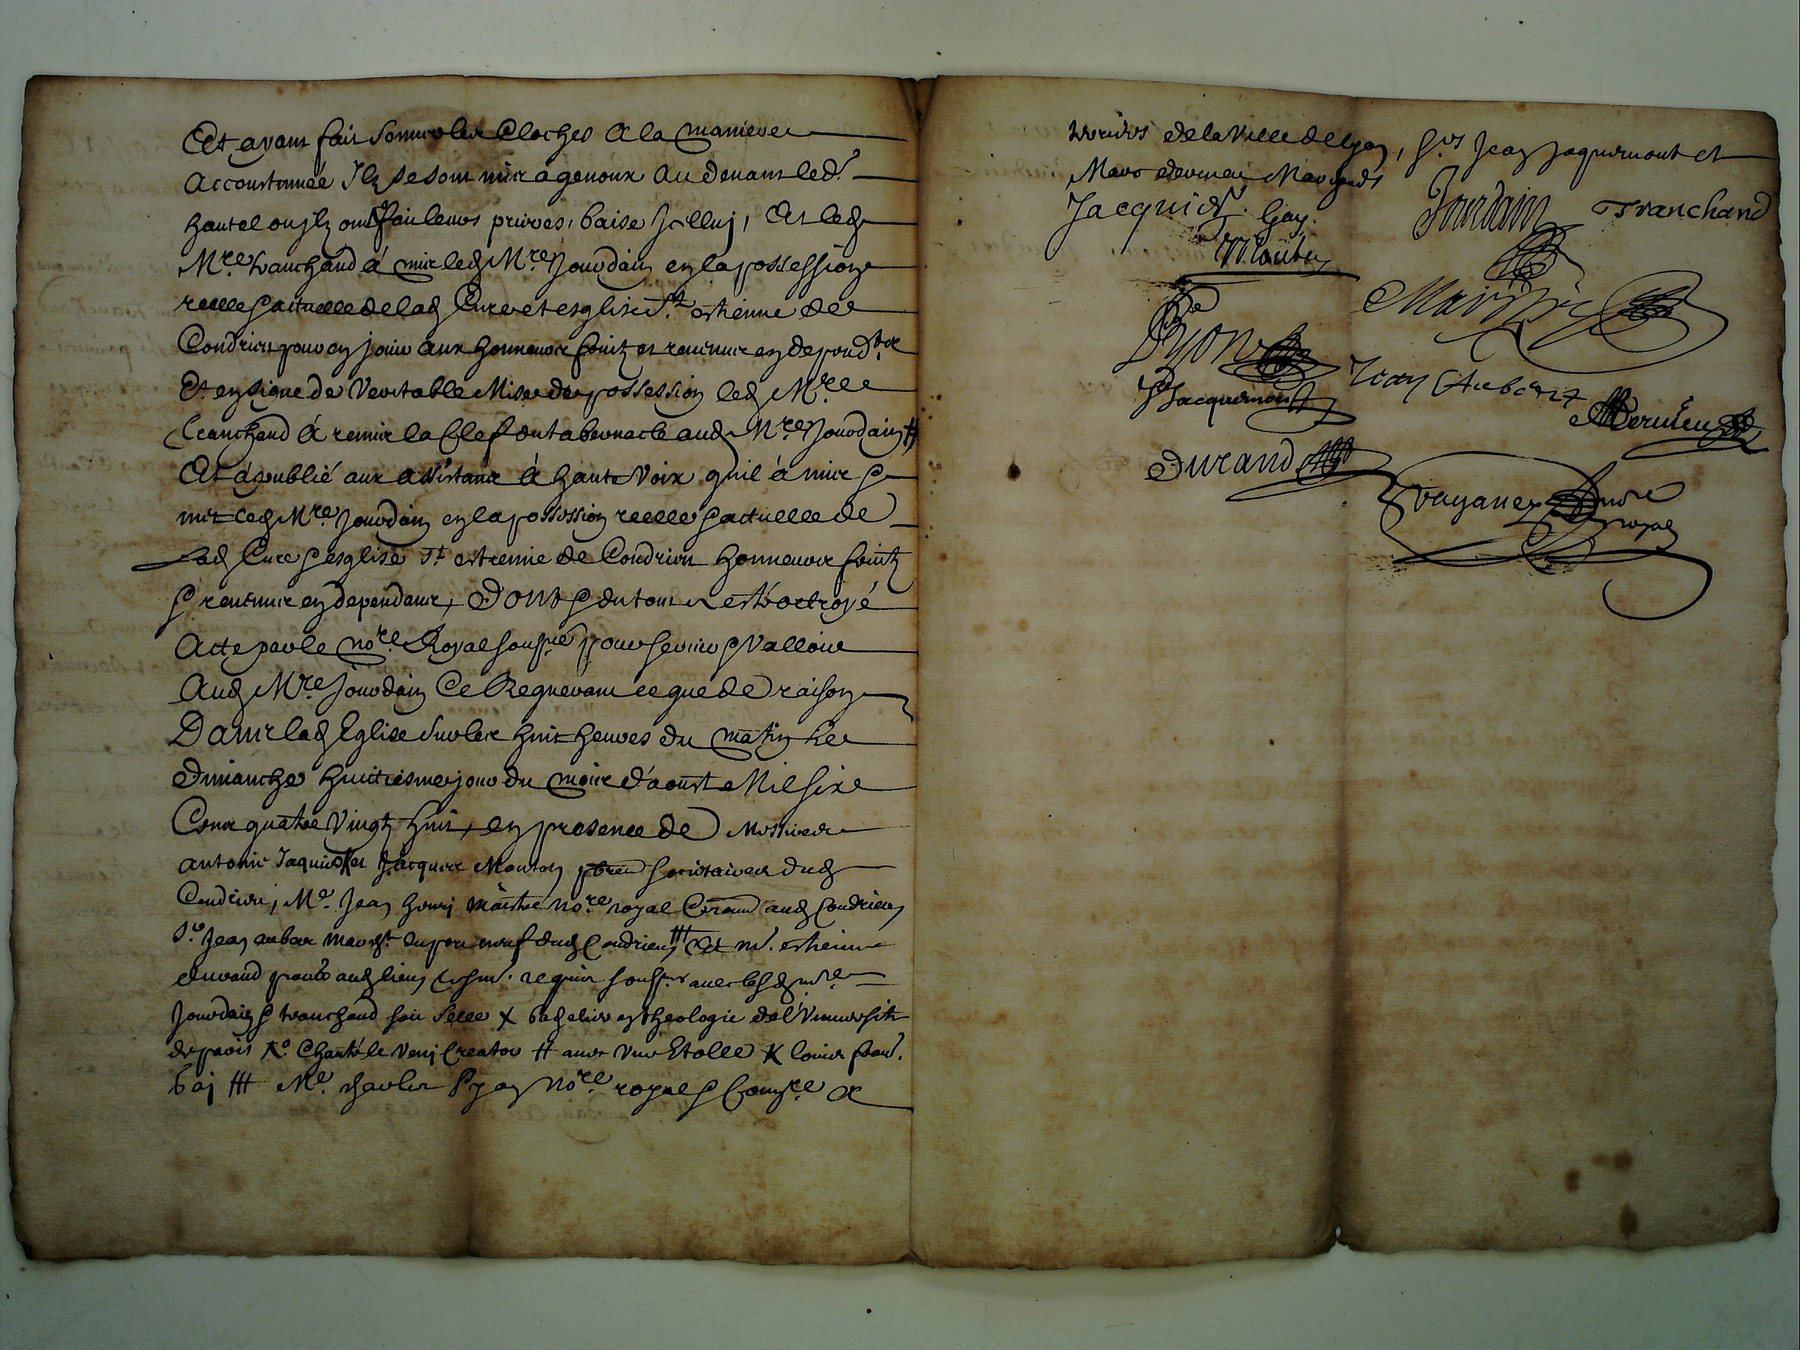 Et ayant fait sonner les Cloches a la maniere
accoustumée Ilz se sont mis a genoux au devant led.
hautel ou ilz ont fait leurs prieres, baise Icelluy, Et led
Mre tranchand á mis led Mre Jourdain en la possession
reelle & actuelle de lad Cure et esglise St estienne de
Condrieu pour en jouir aux honneurs fruitz et revenus en depend
Et en signe de Veritable Mise de possession led Mre
tranchand á remis la Clef du tabernacle aud Mre Jourdain #
Et á publié aux assistans á haute Voix quil á mis &
met led Mre Jourdain en la possession reelle & actuelle de
lad Cure & esglise St estienne de Condrieu honneurs fruitz
& revenus en dependans, Dont & du tout a esté octroyé
Acte par le nore Royal soubsne pour servir & Valloir
Aud Mre Jourdain Ce Requerant ce que de raison
Dans lad Eglise sur les huit heures du matin Le
dimanche huitiesme jour du mois d'aoust Mil six
Cens quatre Vingtz huit, en presence de Messieurs
antoine Jaquier et Jacques Mouton pbres societaires dud
Condrieu, Me Jean henry maistre nore royal aud Condrieu
Sr Jean aubert marcht du port neuf dud Condrieu ## Et mr estienne
durand aud lieu tesm. requis soubsnes avec lesd mre
Jourdain & tranchand fait Celle X bachelier en theologie de l'Université
de paris X° Chanté le Veni Creator # avec une Etolle X
### Me charles Pyon nore royal &
de la Ville de Lyon, Srs Jean Jaquemont et
Marc dervieu Marchands
Jacquier Gay Jourdain Tranchand
Mouton
Pyon Maistre
JJacquemont Jean Aubert MDervieu
Durand
Vaganey nore
royal